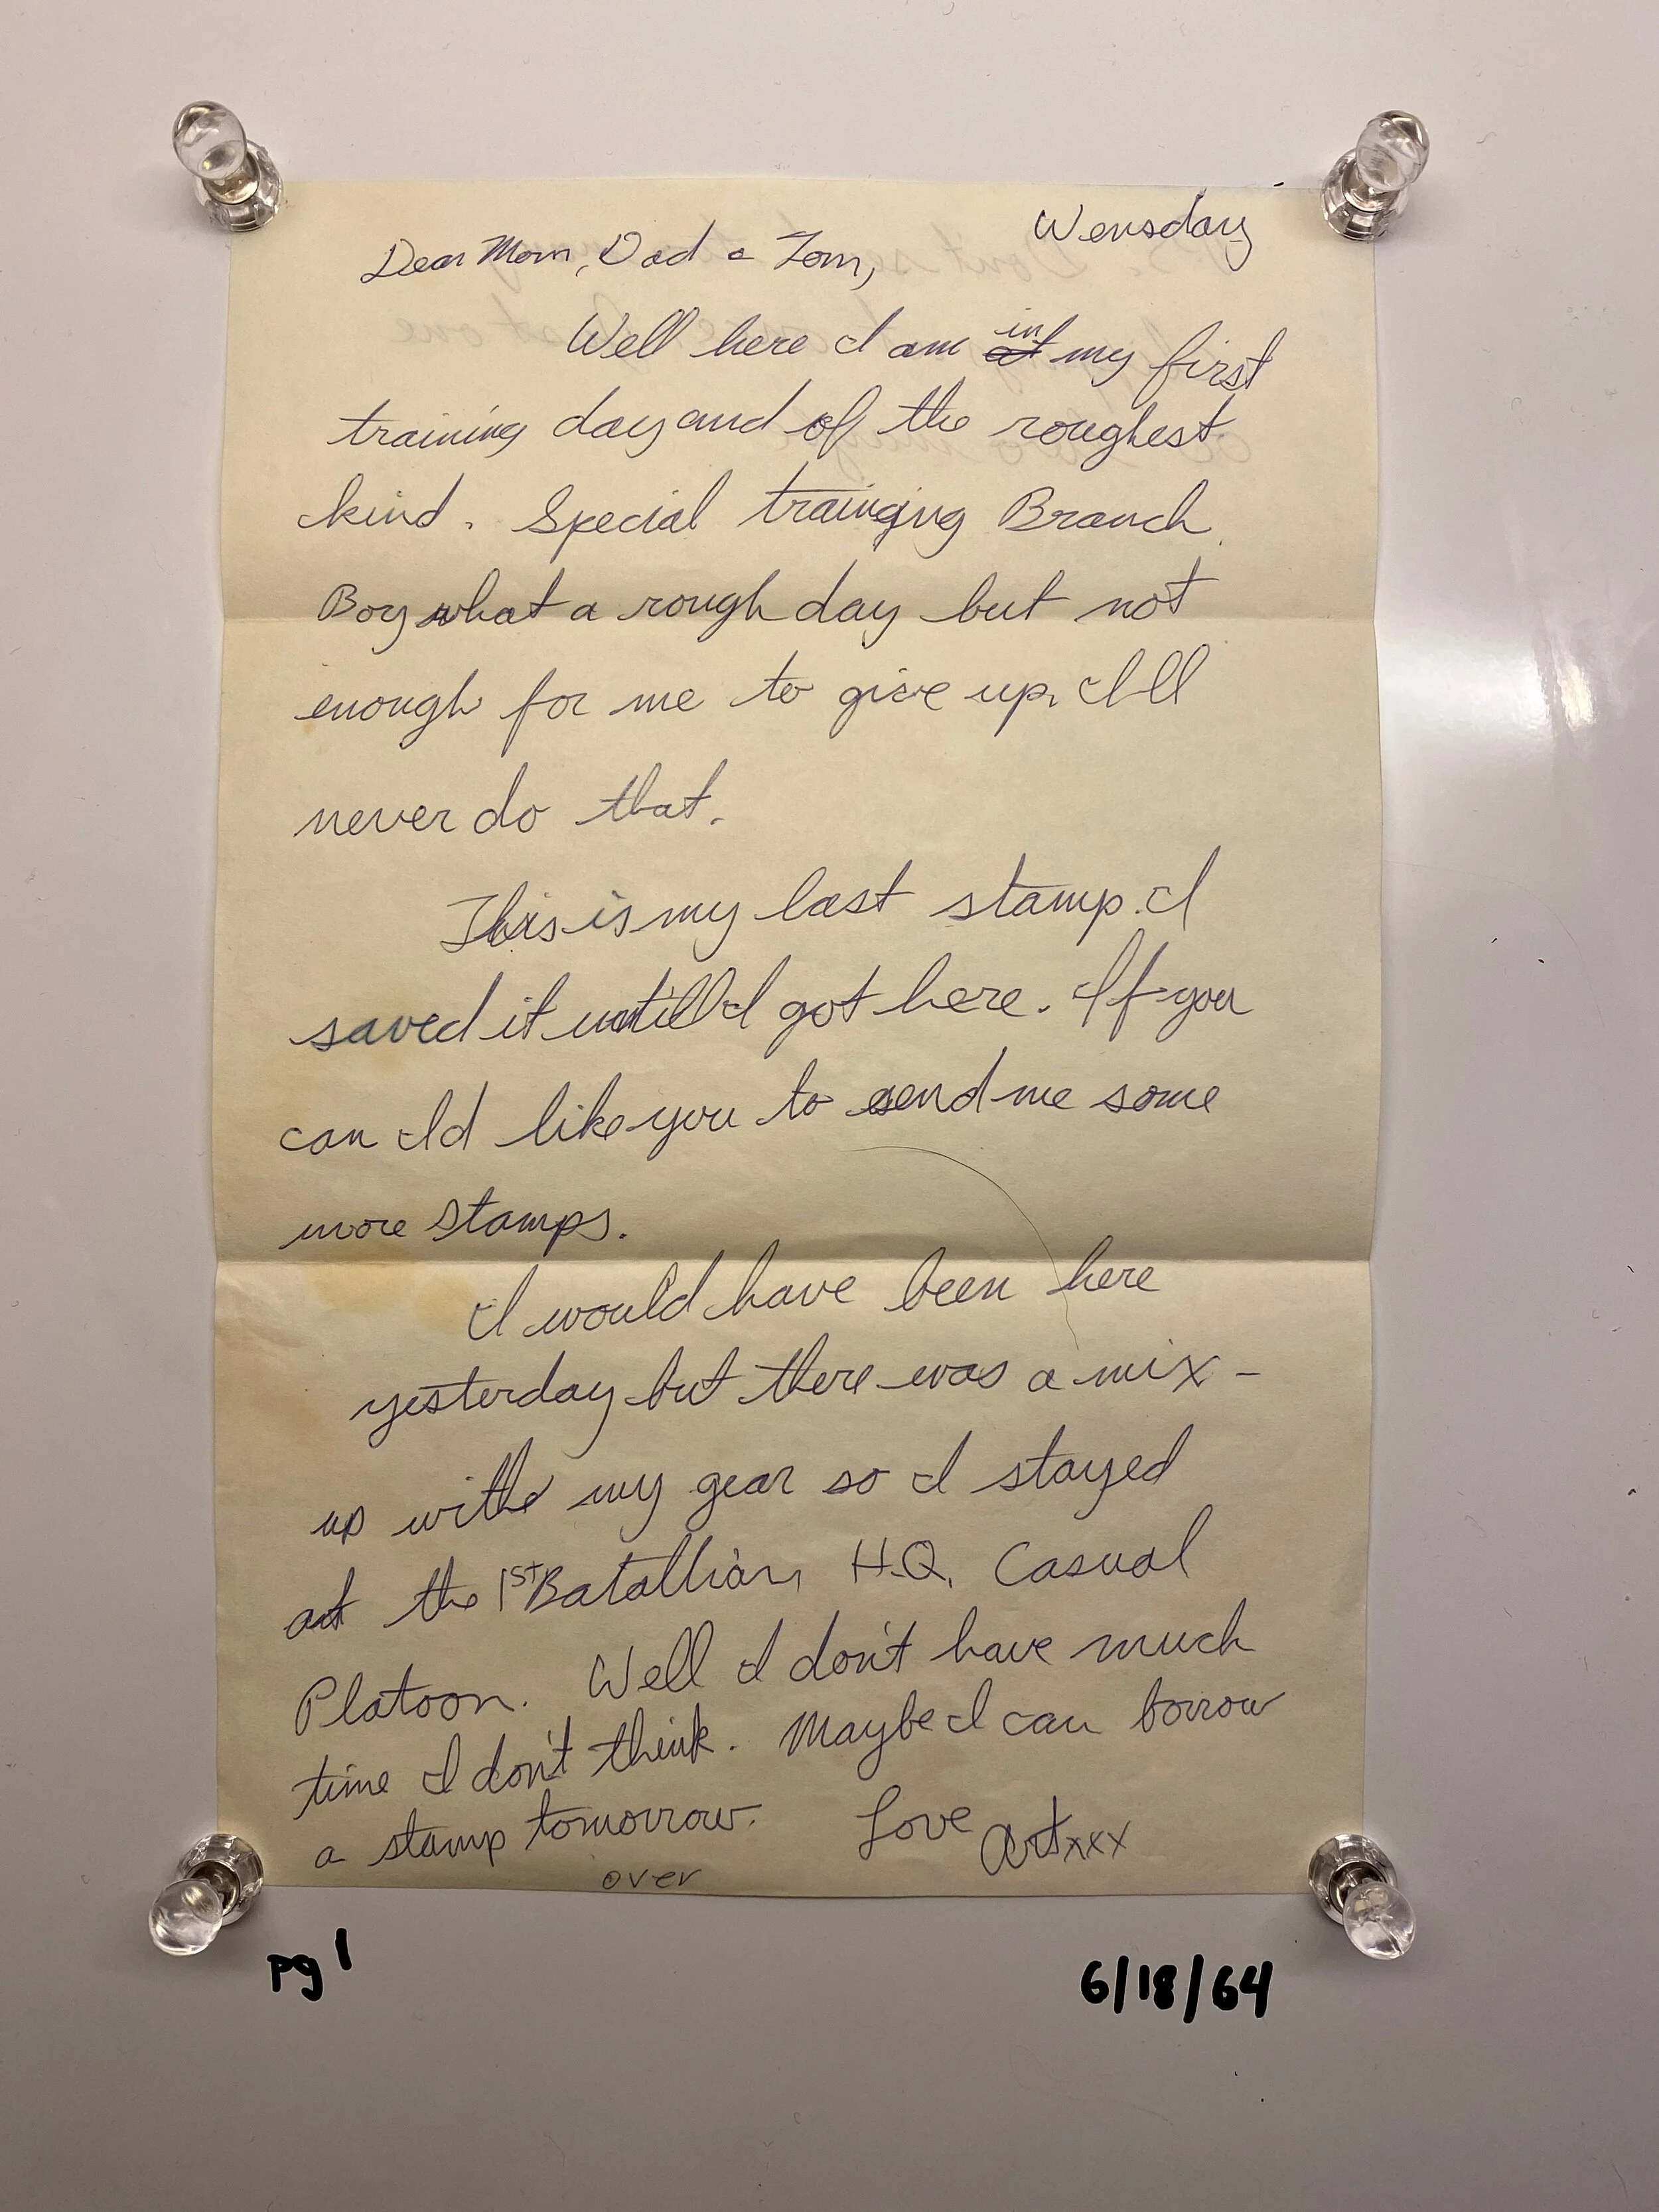 Wensday
Dear Mom, Dad & Tom,
Well here I am in my first
training day and of the roughest
kind. Special trainging Branch.
Boy what a rough day but not
enough for me to give up. I'll
never do that.
This is my last stamp. I
saved it untill I got here. If you
can Id like you to send me some
more stamps.
I would have been here
yesterday but there was a mix-
up with my gear so I stayed
at the 1st Batallion H.Q. Casual
Platoon. Well I don't have much
time I don't think. Maybe I can borrow
a stamp tomorrow. Love Art xxx
over
pg 1
6/18/64